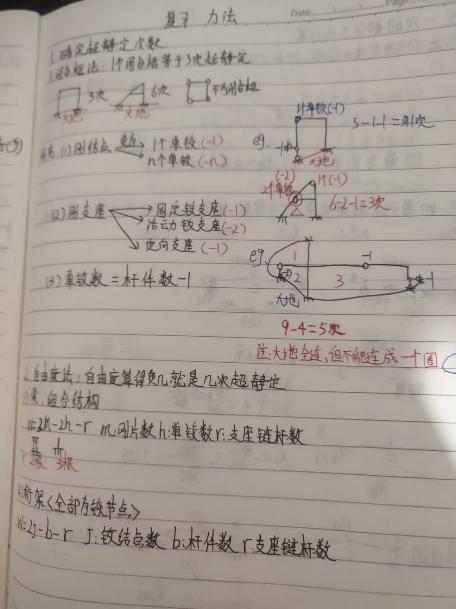 复习 力法
Date:
Page
1.确定超静定次数
1.闭合框法：1个闭合框等于3次超静定
3次 6次 不为闭合框
大地 大地
(1)刚结点 1个单铰(-1)
n个单铰(-n)
eg. 1个单铰(-1) -1 大地 3-1-1=1次
(2)刚支座 固定铰支座(-1)
活动铰支座(-2)
定向支座(-1)
(-2) 2个单铰 1个(-1) 6-2-1=3次
(3)单铰数=杆件数-1
eg. 1 2 3 -1 -1
大地
9-4=5次
注:大地全连,但不能连成一个圈
自由度法：自由度算得负几就是几次超静定
组合结构
m:刚片数 h:单铰数 r:支座链杆数
2根 3根
桁架<全部为铰节点>
W=2J-b-r J:铰结点数 b:杆件数 r:支座链杆数